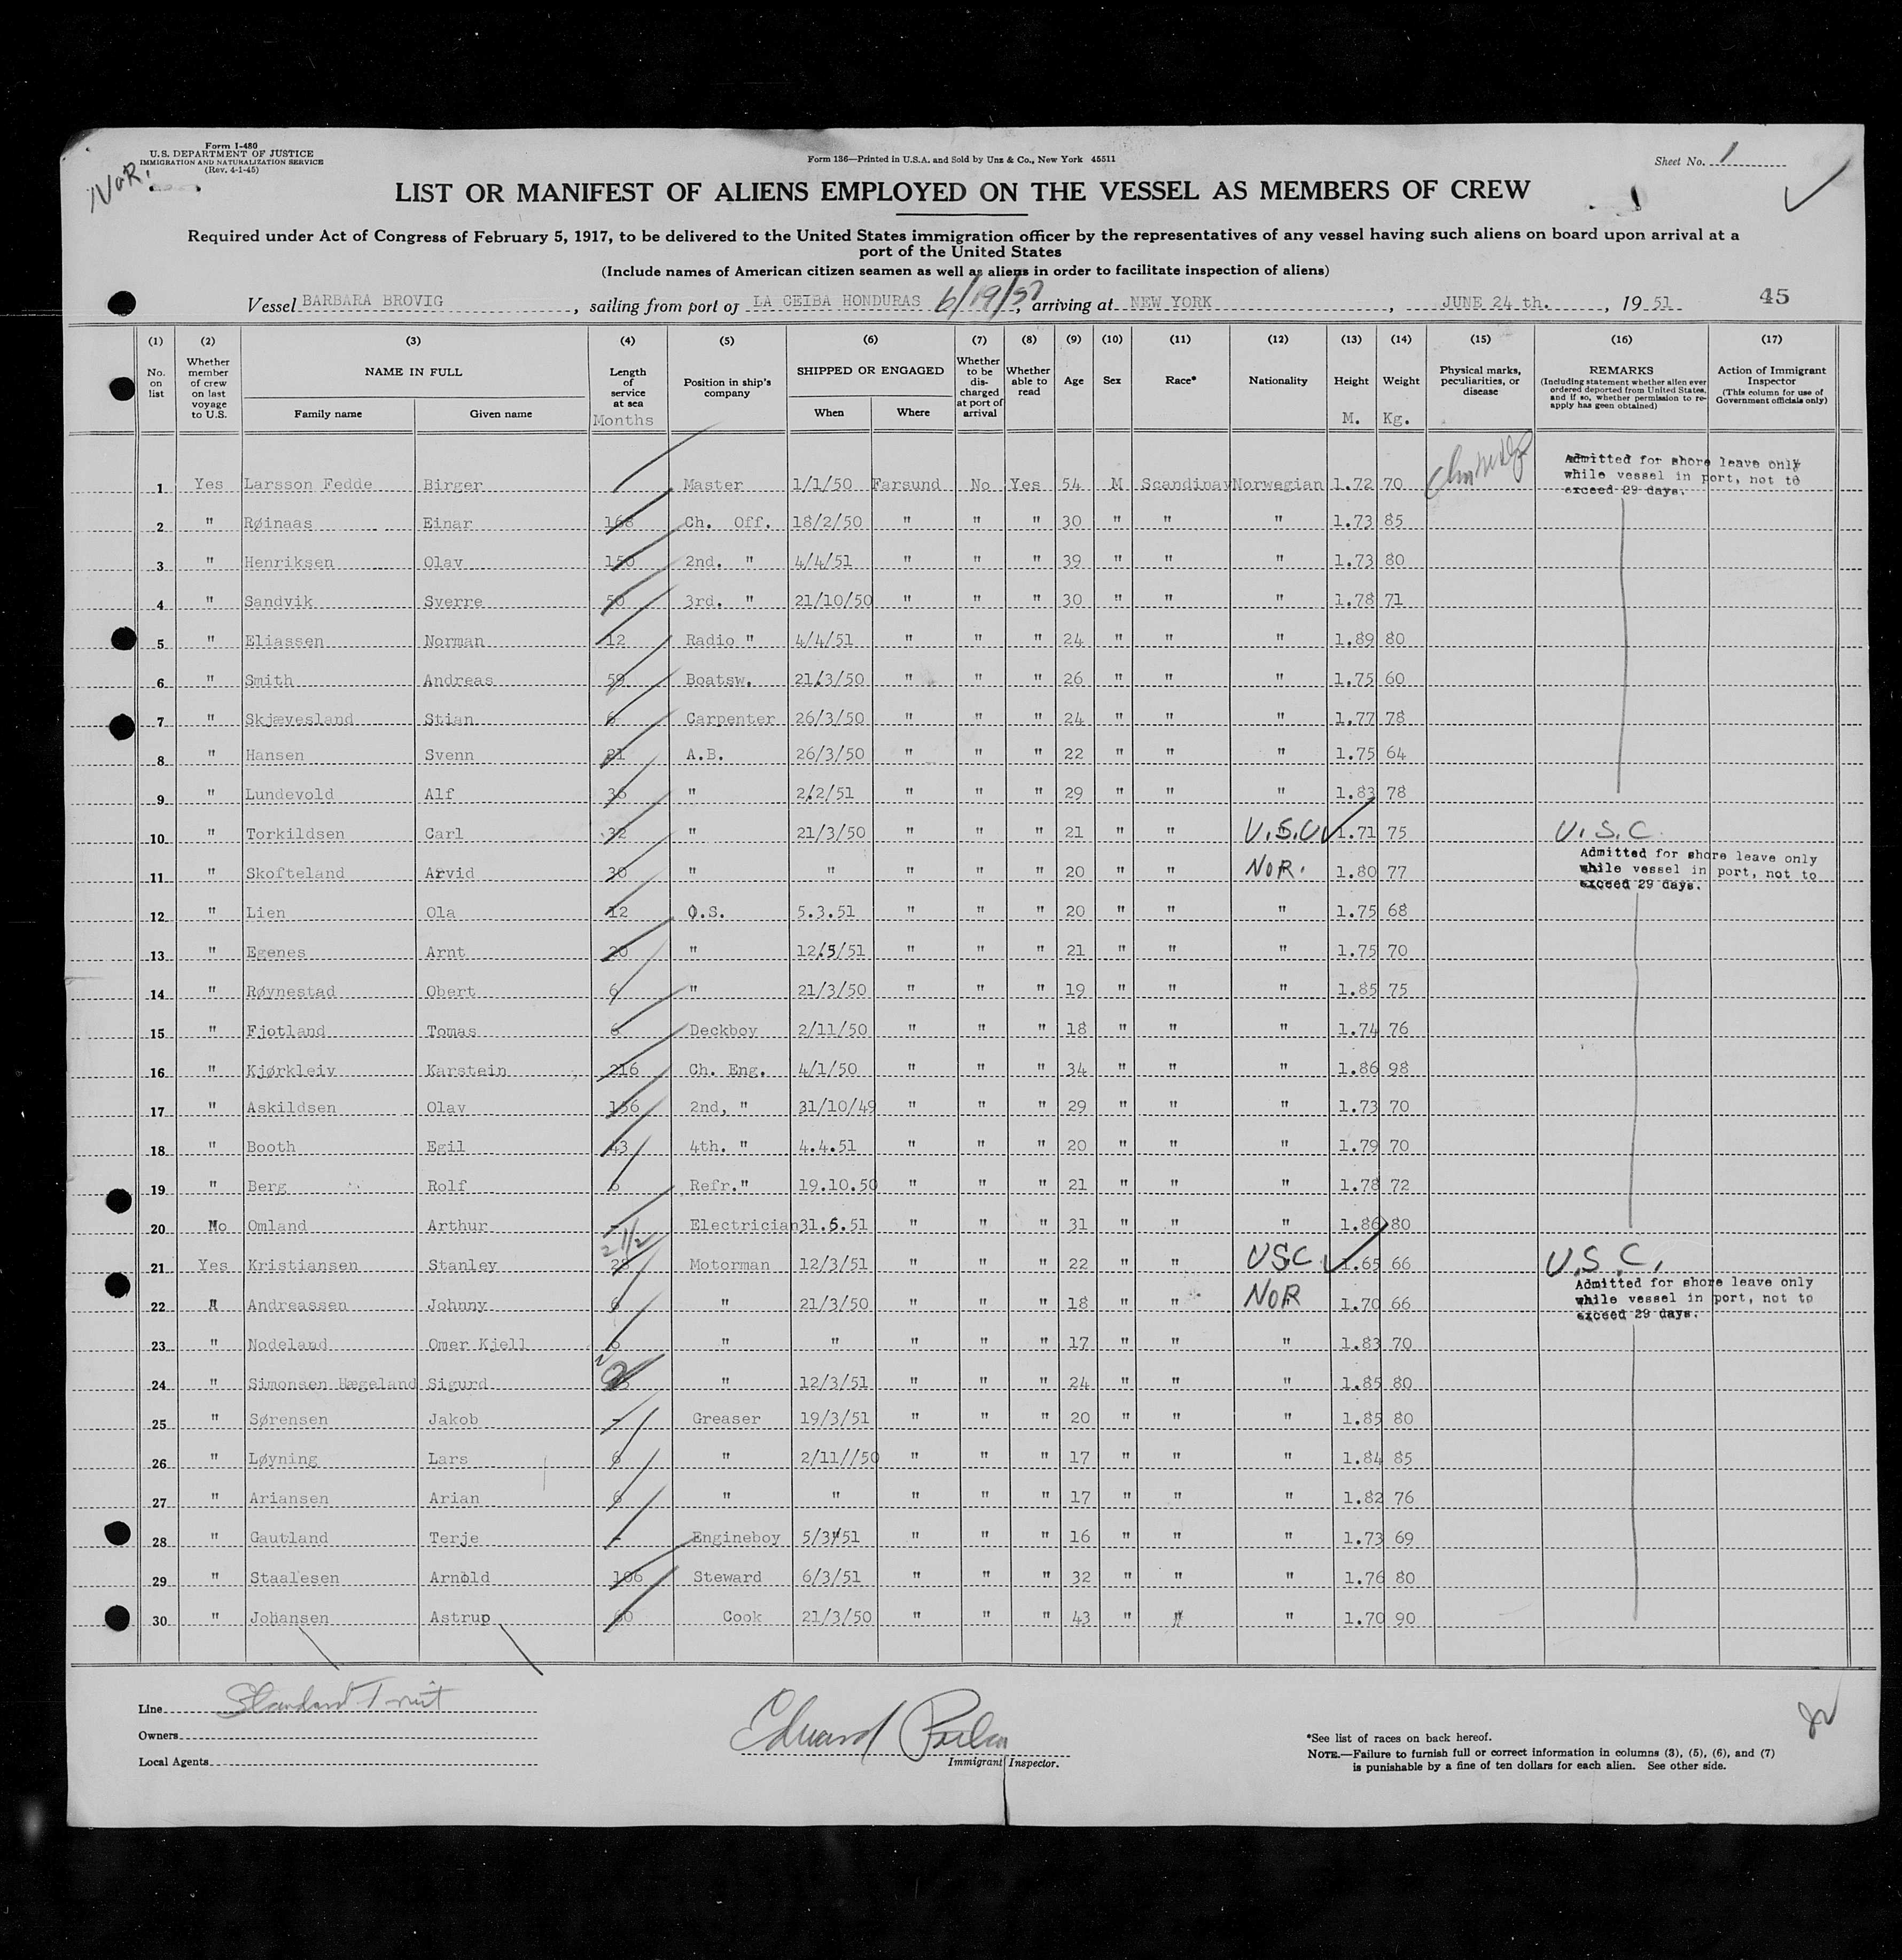 Form I-480
U.S. DEPARTMENT OF JUSTICE
IMMIGRATION AND NATURALIZATION SERVICE
(Rev. 4-1-45)
NOR.
Form 136—Printed in U.S.A. and Sold by Unz & Co., New York 45511
Sheet No. 1
LIST OR MANIFEST OF ALIENS EMPLOYED ON THE VESSEL AS MEMBERS OF CREW
Required under Act of Congress of February 5, 1917, to be delivered to the United States immigration officer by the representatives of any vessel having such aliens on board upon arrival at a
port of the United States
(Include names of American citizen seamen as well as aliens in order to facilitate inspection of aliens)
Vessel BARBARA BROVIG, sailing from port of LA CEIBA HONDURAS 6/19/51, arriving at NEW YORK, JUNE 24 th., 19 51 45
(1) (2) (3) (4) (5) (6) (7) (8) (9) (10) (11) (12) (13) (14) (15) (16) (17)
No. on list
Whether member of crew on last voyage to U.S.
NAME IN FULL
Family name
Given name
Length of service at sea
Months
Position in ship's company
SHIPPED OR ENGAGED
When
Where
Whether to be discharged at port of arrival
Whether able to read
Age
Sex
Race*
Nationality
Height
M.
Weight
Kg.
Physical marks, peculiarities, or disease
REMARKS
(Including statement whether alien ever ordered deported from United States, and if so, whether permission to re-apply has geen obtained)
Action of Immigrant Inspector
(This column for use of Government officials only)
1 Yes Larsson Fedde Birger Master 1/1/50 Farsund No Yes 54 M Scandinav Norwegian 1.72 70
Admitted for shore leave only
while vessel in port, not to
exceed 29 days.
2 " Røinaas Einar 168 Ch. Off. 18/2/50 " " " 30 " " " 1.73 85
3 " Henriksen Olav 150 2nd. " 4/4/51 " " " 39 " " " 1.73 80
4 " Sandvik Sverre 50 3rd. " 21/10/50 " " " 30 " " " 1.78 71
5 " Eliassen Norman 12 Radio " 4/4/51 " " " 24 " " " 1.89 80
6 " Smith Andreas 59 Boatsw. 21/3/50 " " " 26 " " " 1.75 60
7 " Skjævesland Stian 6 Carpenter 26/3/50 " " " 24 " " " 1.77 78
8 " Hansen Svenn 21 A.B. 26/3/50 " " " 22 " " " 1.75 64
9 " Lundevold Alf 36 " 2/2/51 " " " 29 " " " 1.83 78
10 " Torkildsen Carl 32 " 21/3/50 " " " 21 " " U.S.C. 1.71 75 U.S.C.
11 " Skofteland Arvid 30 " " " " " 20 " " NOR. 1.80 77
Admitted for shore leave only
while vessel in port, not to
exceed 29 days.
12 " Lien Ola 12 O.S. 5.3.51 " " " 20 " " " 1.75 68
13 " Egenes Arnt 20 " 12/5/51 " " " 21 " " " 1.75 70
14 " Røynestad Obert 6 " 21/3/50 " " " 19 " " " 1.85 75
15 " Fjotland Tomas 6 Deckboy 2/11/50 " " " 18 " " " 1.74 76
16 " Kjørkleiv Karstein 216 Ch. Eng. 4/1/50 " " " 34 " " " 1.86 98
17 " Askildsen Olav 156 2nd, " 31/10/49 " " " 29 " " " 1.73 70
18 " Booth Egil 43 4th. " 4.4.51 " " " 20 " " " 1.79 70
19 " Berg Rolf 6 Refr." 19.10.50 " " " 21 " " " 1.78 72
20 No Omland Arthur - Electrician 31.5.51 " " " 31 " " " 1.86 80
21 Yes Kristiansen Stanley 2 1/2 Motorman 12/3/51 " " " 22 " " USC 1.65 66 U.S.C.
22 " Andreassen Johnny 6 " 21/3/50 " " " 18 " " NOR 1.70 66
Admitted for shore leave only
while vessel in port, not to
exceed 29 days.
23 " Nodeland Omer Kjell 6 " " " " " 17 " " " 1.83 70
24 " Simonsen Hægeland Sigurd " 12/3/51 " " " 24 " " " 1.85 80
25 " Sørensen Jakob - Greaser 19/3/51 " " " 20 " " " 1.85 80
26 " Løyning Lars 6 " 2/11//50 " " " 17 " " " 1.84 85
27 " Ariansen Arian 6 " " " " " 17 " " " 1.82 76
28 " Gautland Terje - Engineboy 5/3/51 " " " 16 " " " 1.73 69
29 " Staalesen Arnold 106 Steward 6/3/51 " " " 32 " " " 1.76 80
30 " Johansen Astrup 60 Cook 21/3/50 " " " 43 " " " 1.70 90
Line Standard Fruit
Owners
Local Agents
Edward
Immigrant Inspector.
*See list of races on back hereof.
NOTE.—Failure to furnish full or correct information in columns (3), (5), (6), and (7)
is punishable by a fine of ten dollars for each alien. See other side.